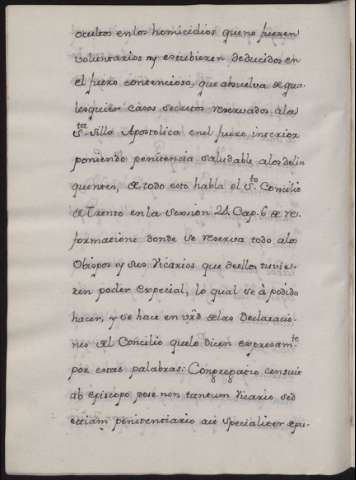 ocultos en los homicidios que no fueren
voluntarios y estubieren deducidos en
el fuero contencioso, que absuelva de qua-
lesquier casos secretos reservados a la
Sta. Silla Apostolica en el fuero interior
poniendo penitencia saludable a los delin-
quentes, de todo esto habla el Sto. Concilio
de Trento en la session 24 Cap. 6 de re-
formatione donde se reserva todo a los
Obispos y sus Vicarios que de ellos tuvie-
ren poder especial, lo qual se à podido
hacer, y se hace en vrd de las Declaracio-
nes del Concilio que lo dicen expresamte
por estas palabras: Congregatio censuit
ab episcopo pose non tantum Vicario sed
ettiam penitentiario aut specialiter depu-